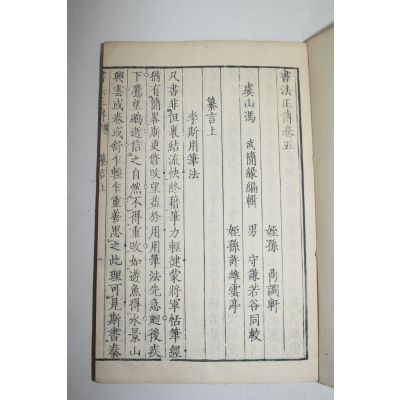 書法正傳卷五
姪孫 鼎調軒
虞山馮 武簡緣編輯 男 守謙若谷同較
姪孫 雄雲亭
纂言上
李斯用筆法
凡書非但裹結流快終藉筆力輕健蒙將軍恬筆經
猶有簡畧斯更修改望益於用用筆法先急廻後疾
下鷹望鵬逝信之自然不得重改如遊魚得水景山
興雲或卷或舒乍輕乍重善思之此理可見斯書秦
書法正傳 纂言上